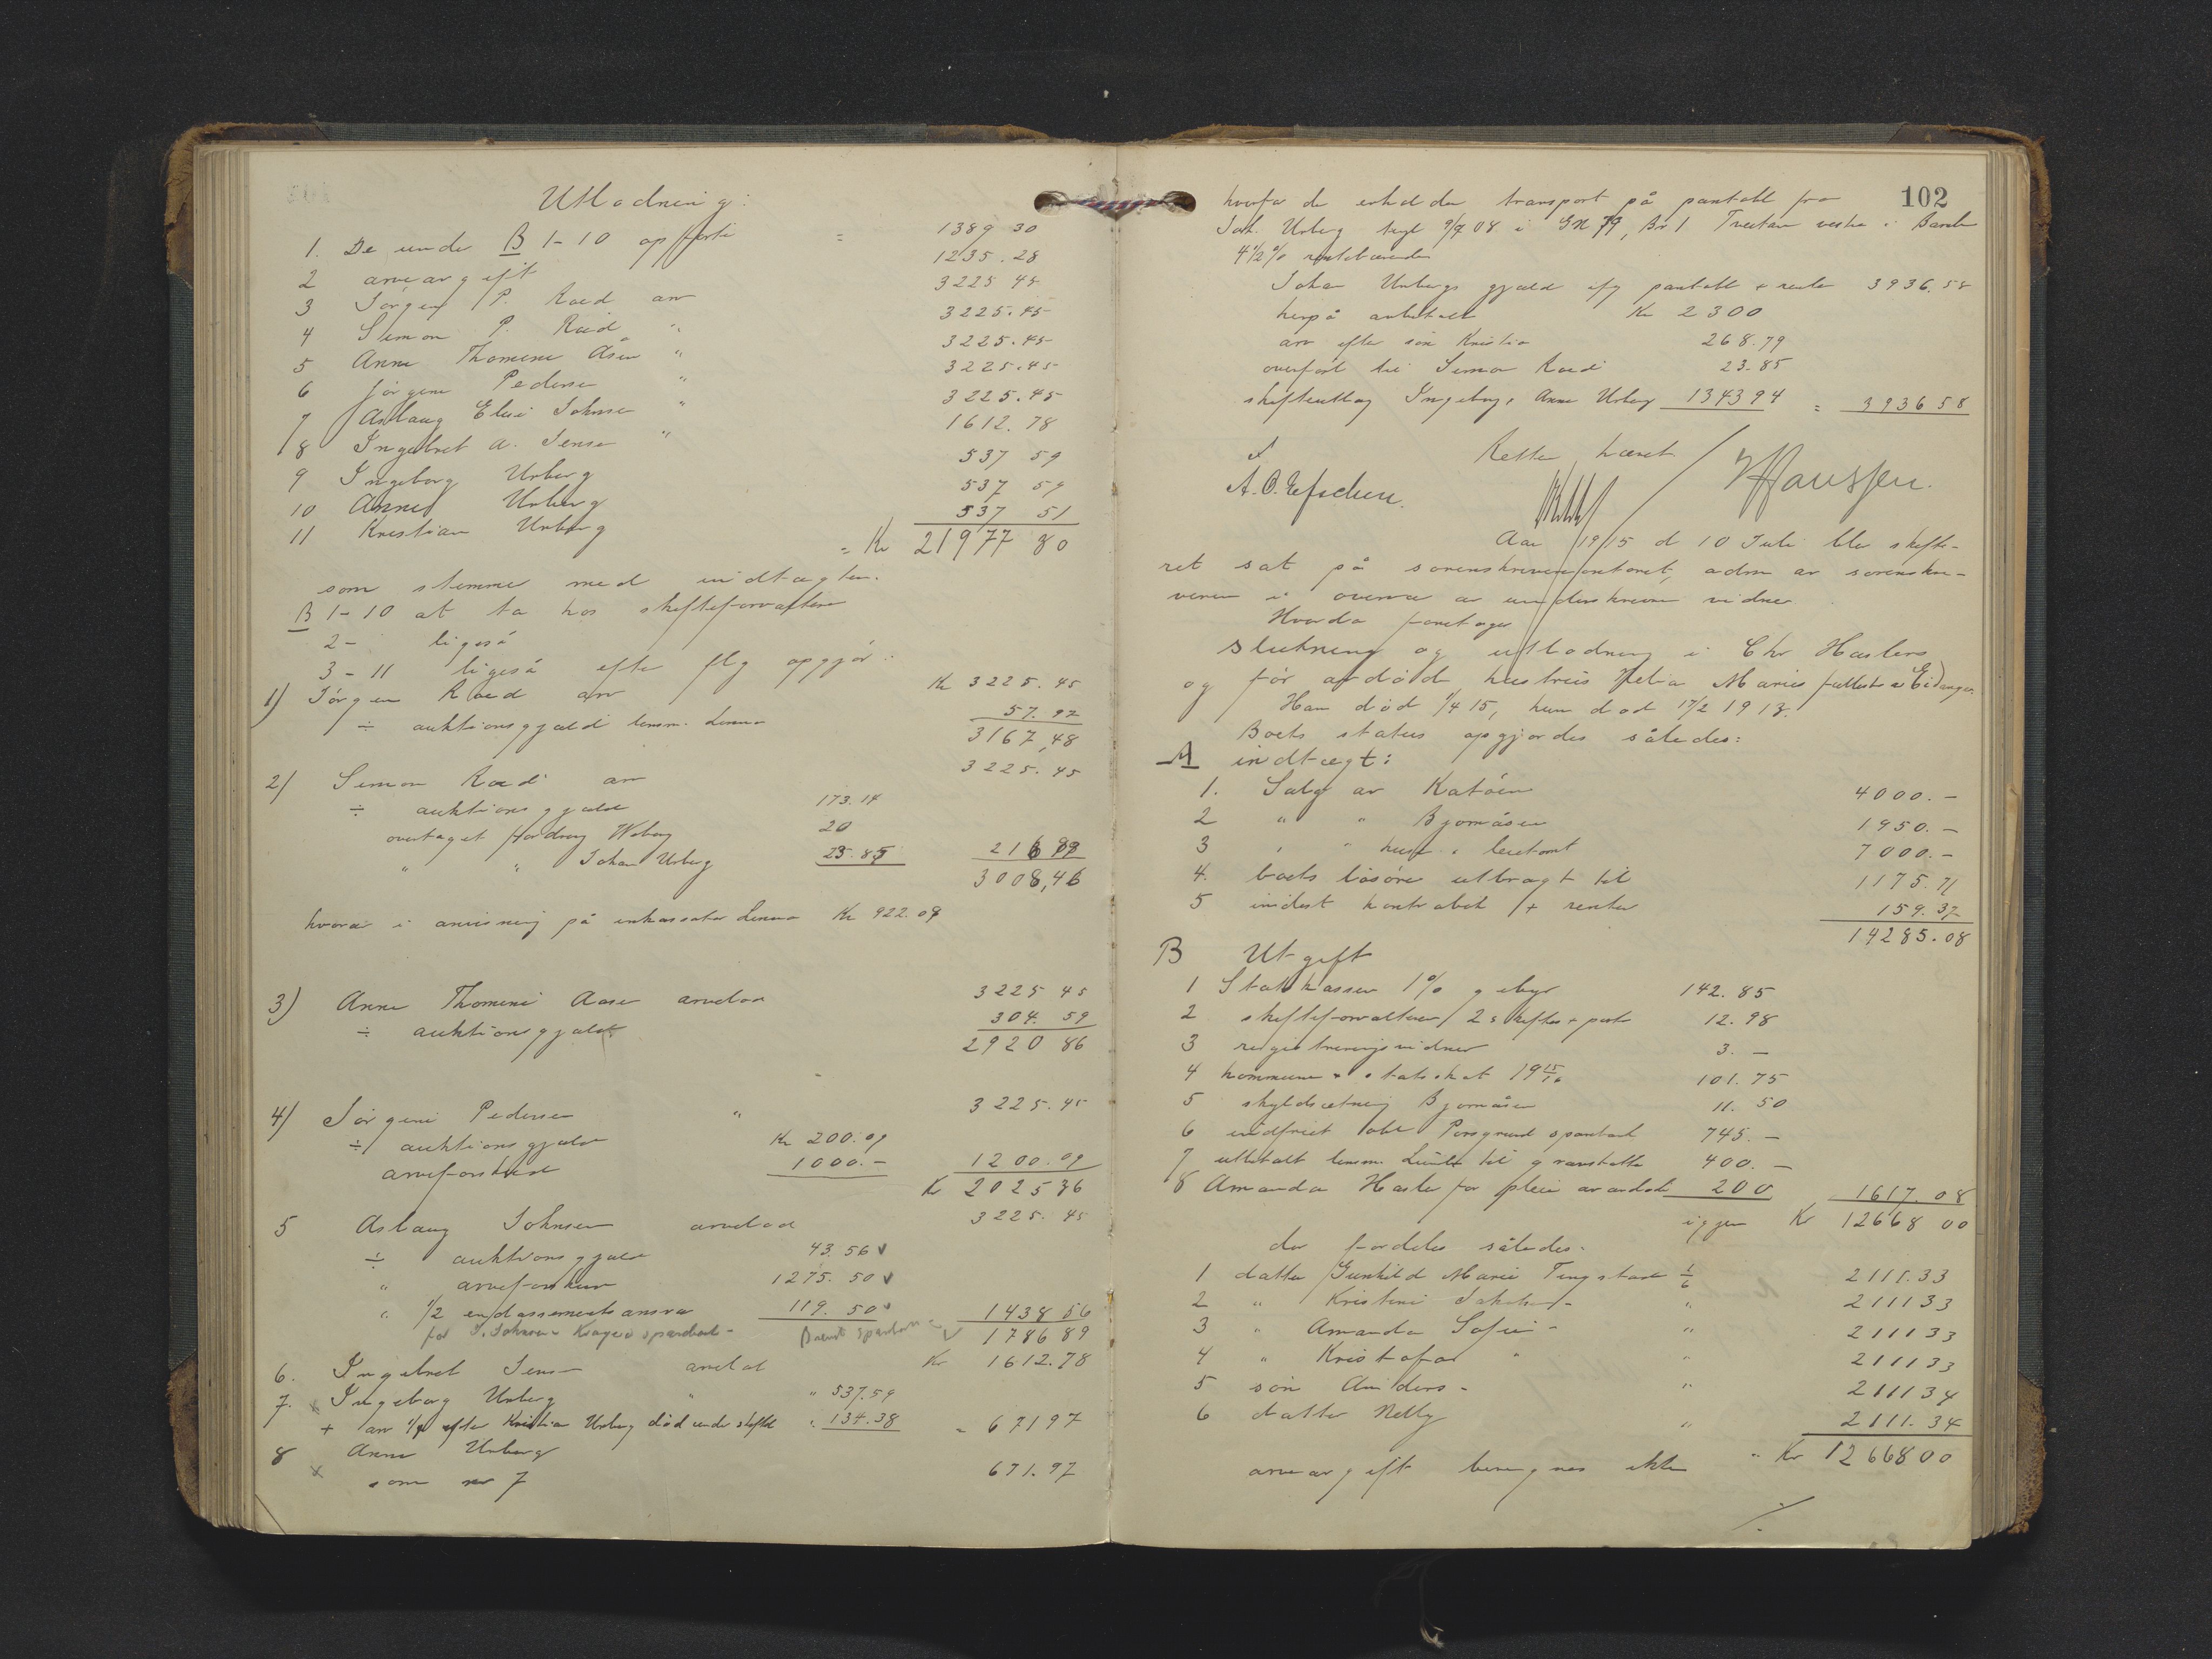 Utlodning:
1. De under B 1-10 opførte = 1389 30
2 arveavgift 1235.28
3 Jørgen P. Roed arv 3225 45
4 Simon P. Roed " 3225.45
5 Anne Thomine Åsen " 3225.45
6 Jørgine Pedersen " 3225.45
7 Aslaug Elise Johnsen " 3225.45
8 Ingebret A. Jensen " 1612.78
9 Ingeborg Urberg 537 59
10 Anne Urberg 537 59
11 Kristian Urberg 537 51
= Kr 21977 80
som stemmer med indtægten.
B 1-10 at ta hos skifteforvalteren
2- ligeså
3-11 ligeså efter flg opgjør:
1) Jørgen Roed arv Kr 3225.45
÷ auktionsgjæld lensm. 57.97
3167,48
2) Simon Roed arv 3225.45
÷ auktionsgjæld 173.14
overtaget fordring Woberg 20
" " Johan Urberg 23.85 216 99
3008,46
hvorav i anvisning på inkassator Kr 922.09
3) Anne Thomine Aasen arvelod 3225 45
÷ auktionsgjæld 304.59
2920 86
4) Jørgine Pedersen " 3225.45
÷ auktionsgjæld Kr 200.09
arveforskud 1000.- 1200.09
Kr 2025 36
5 Aslaug Johnsen arvelod 3225.45
÷ auktionsgjæld 43.56
" arveforskud 1275.50
" 1/2 endossementsansvar 119.50 1438 56
for J. Johnsen Kragerø sparebank - 1786 89
6. Ingebret Jensen arvelod Kr 1612.78
7. Ingeborg Urberg " " 537.59
+ arv 1/4 efter Kristian Urberg død under skiftet " 134.38 = 671 97
8 Anne Urberg
som nr 7 671.97
102
hvorfor de erholder transport på pantobl fra
Joh. Urberg tingl 9/9 08 i GN 79, Br 1 vestre i Bamle
4 1/2 % rentebærende
Johan Urbergs gjæld ifg pantobl + renter 3936.58
herpå avbetalt Kr 2300
arv efter søn Kristian 268.79
overført til Simon Roed 23.85
skifteutlæg Ingeborg & Anne Urberg 1343 94 = 3936 58
Retten hævet
Aar 1915 d 10 Juli blev skifte-
ret sat på sorenskriverkontoret, adm av sorenskri-
veren i overvær av underskrevne vidner
Hvorda foretoges
slutning og utlodning i Chr Haslers
og før avdød hustrus Maries fællesbo i Eidanger.
Han død 1/4 15, hun død 17/2 1913.
Boets status opgjordes således:
A indtægt:
1. Salg av Katøen 4000.-
2 " " Bjørnåsen 1950.-
3 " " hus & 7000.-
4. boets løsøre utbragt til 1175.71
5 indest kontrabok + renter 159.37
14285.08
B Utgift
1 Statskassen 1% gebyr 142.85
2 skifteforvalteren 2 + porto 12.98
3 registreringsvidner 3.-
4 kommune & statsskat 19 15/16 101.75
5 skyldsætning Bjørnåsen 11.50
6 indfriet obl Porsgrund sparebank 745.-
7 utbetalt lensm. til gravstøtte 400.-
8 Amanda Hasler for pleie av avdøde 200 1617.08
igjen Kr 12668 00
der fordeles således.
1 datter Gunhild Marie Tingstad 1/6 2111.33
2 " Kristine Jakobsen - " 2111 33
3 " Amanda Sofie - " 2111 33
4 " Kristofa " " 2111 33
5 søn Anders - " 2111 34
6 datter Nelly " 2111.34
= Kr 12668 00
arveavgift beregnes ikke